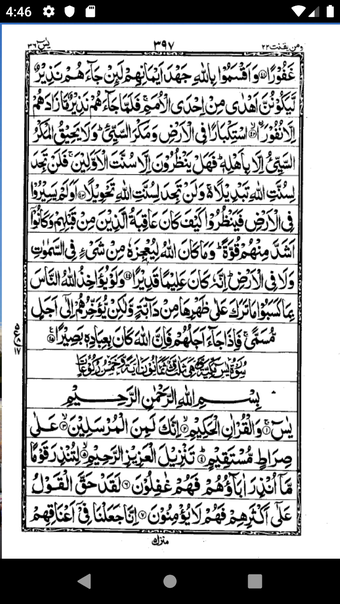 4:46
ومن يقنت ٢٢
٣٩٧
يٰسٓ ٣٦
غَفُوْرًا ۞ وَاَقْسَمُوْا بِاللّٰهِ جَهْدَ اَيْمَانِهِمْ لَىِٕنْ جَآءَهُمْ نَذِيْرٌ
لَّيَكُوْنُنَّ اَهْدٰى مِنْ اِحْدَى الْاُمَمِ ۚ فَلَمَّا جَآءَهُمْ نَذِيْرٌ مَّا زَادَهُمْ
اِلَّا نُفُوْرًا ۞ اسْتِكْبَارًا فِى الْاَرْضِ وَمَكْرَ السَّيِّئِ ؕ وَلَا يَحِيْقُ الْمَكْرُ
السَّيِّئُ اِلَّا بِاَهْلِهٖ ؕ فَهَلْ يَنْظُرُوْنَ اِلَّا سُنَّتَ الْاَوَّلِيْنَ ۚ فَلَنْ تَجِدَ
لِسُنَّتِ اللّٰهِ تَبْدِيْلًا ۚ وَلَنْ تَجِدَ لِسُنَّتِ اللّٰهِ تَحْوِيْلًا ۞ اَوَلَمْ يَسِيْرُوْا
فِى الْاَرْضِ فَيَنْظُرُوْا كَيْفَ كَانَ عَاقِبَةُ الَّذِيْنَ مِنْ قَبْلِهِمْ وَكَانُوْۤا
اَشَدَّ مِنْهُمْ قُوَّةً ؕ وَمَا كَانَ اللّٰهُ لِيُعْجِزَهٗ مِنْ شَىْءٍ فِى السَّمٰوٰتِ
وَلَا فِى الْاَرْضِ ؕ اِنَّهٗ كَانَ عَلِيْمًا قَدِيْرًا ۞ وَلَوْ يُؤَاخِذُ اللّٰهُ النَّاسَ
بِمَا كَسَبُوْا مَا تَرَكَ عَلٰى ظَهْرِهَا مِنْ دَآبَّةٍ وَّلٰكِنْ يُّؤَخِّرُهُمْ اِلٰۤى اَجَلٍ
مُّسَمًّى ۚ فَاِذَا جَآءَ اَجَلُهُمْ فَاِنَّ اللّٰهَ كَانَ بِعِبَادِهٖ بَصِيْرًا ۞
سُوْرَةُ يٰسٓ مَكِّيَّةٌ وَّهِىَ ثَلَاثٌ وَّثَمَانُوْنَ اٰيَةً وَّخَمْسُ رُكُوْعَاتٍ
بِسْمِ اللّٰهِ الرَّحْمٰنِ الرَّحِيْمِ
يٰسٓ ۞ وَالْقُرْاٰنِ الْحَكِيْمِ ۞ اِنَّكَ لَمِنَ الْمُرْسَلِيْنَ ۞ عَلٰى
صِرَاطٍ مُّسْتَقِيْمٍ ۞ تَنْزِيْلَ الْعَزِيْزِ الرَّحِيْمِ ۞ لِتُنْذِرَ قَوْمًا
مَّاۤ اُنْذِرَ اٰبَآؤُهُمْ فَهُمْ غٰفِلُوْنَ ۞ لَقَدْ حَقَّ الْقَوْلُ
عَلٰۤى اَكْثَرِهِمْ فَهُمْ لَا يُؤْمِنُوْنَ ۞ اِنَّا جَعَلْنَا فِىْۤ اَعْنَاقِهِمْ